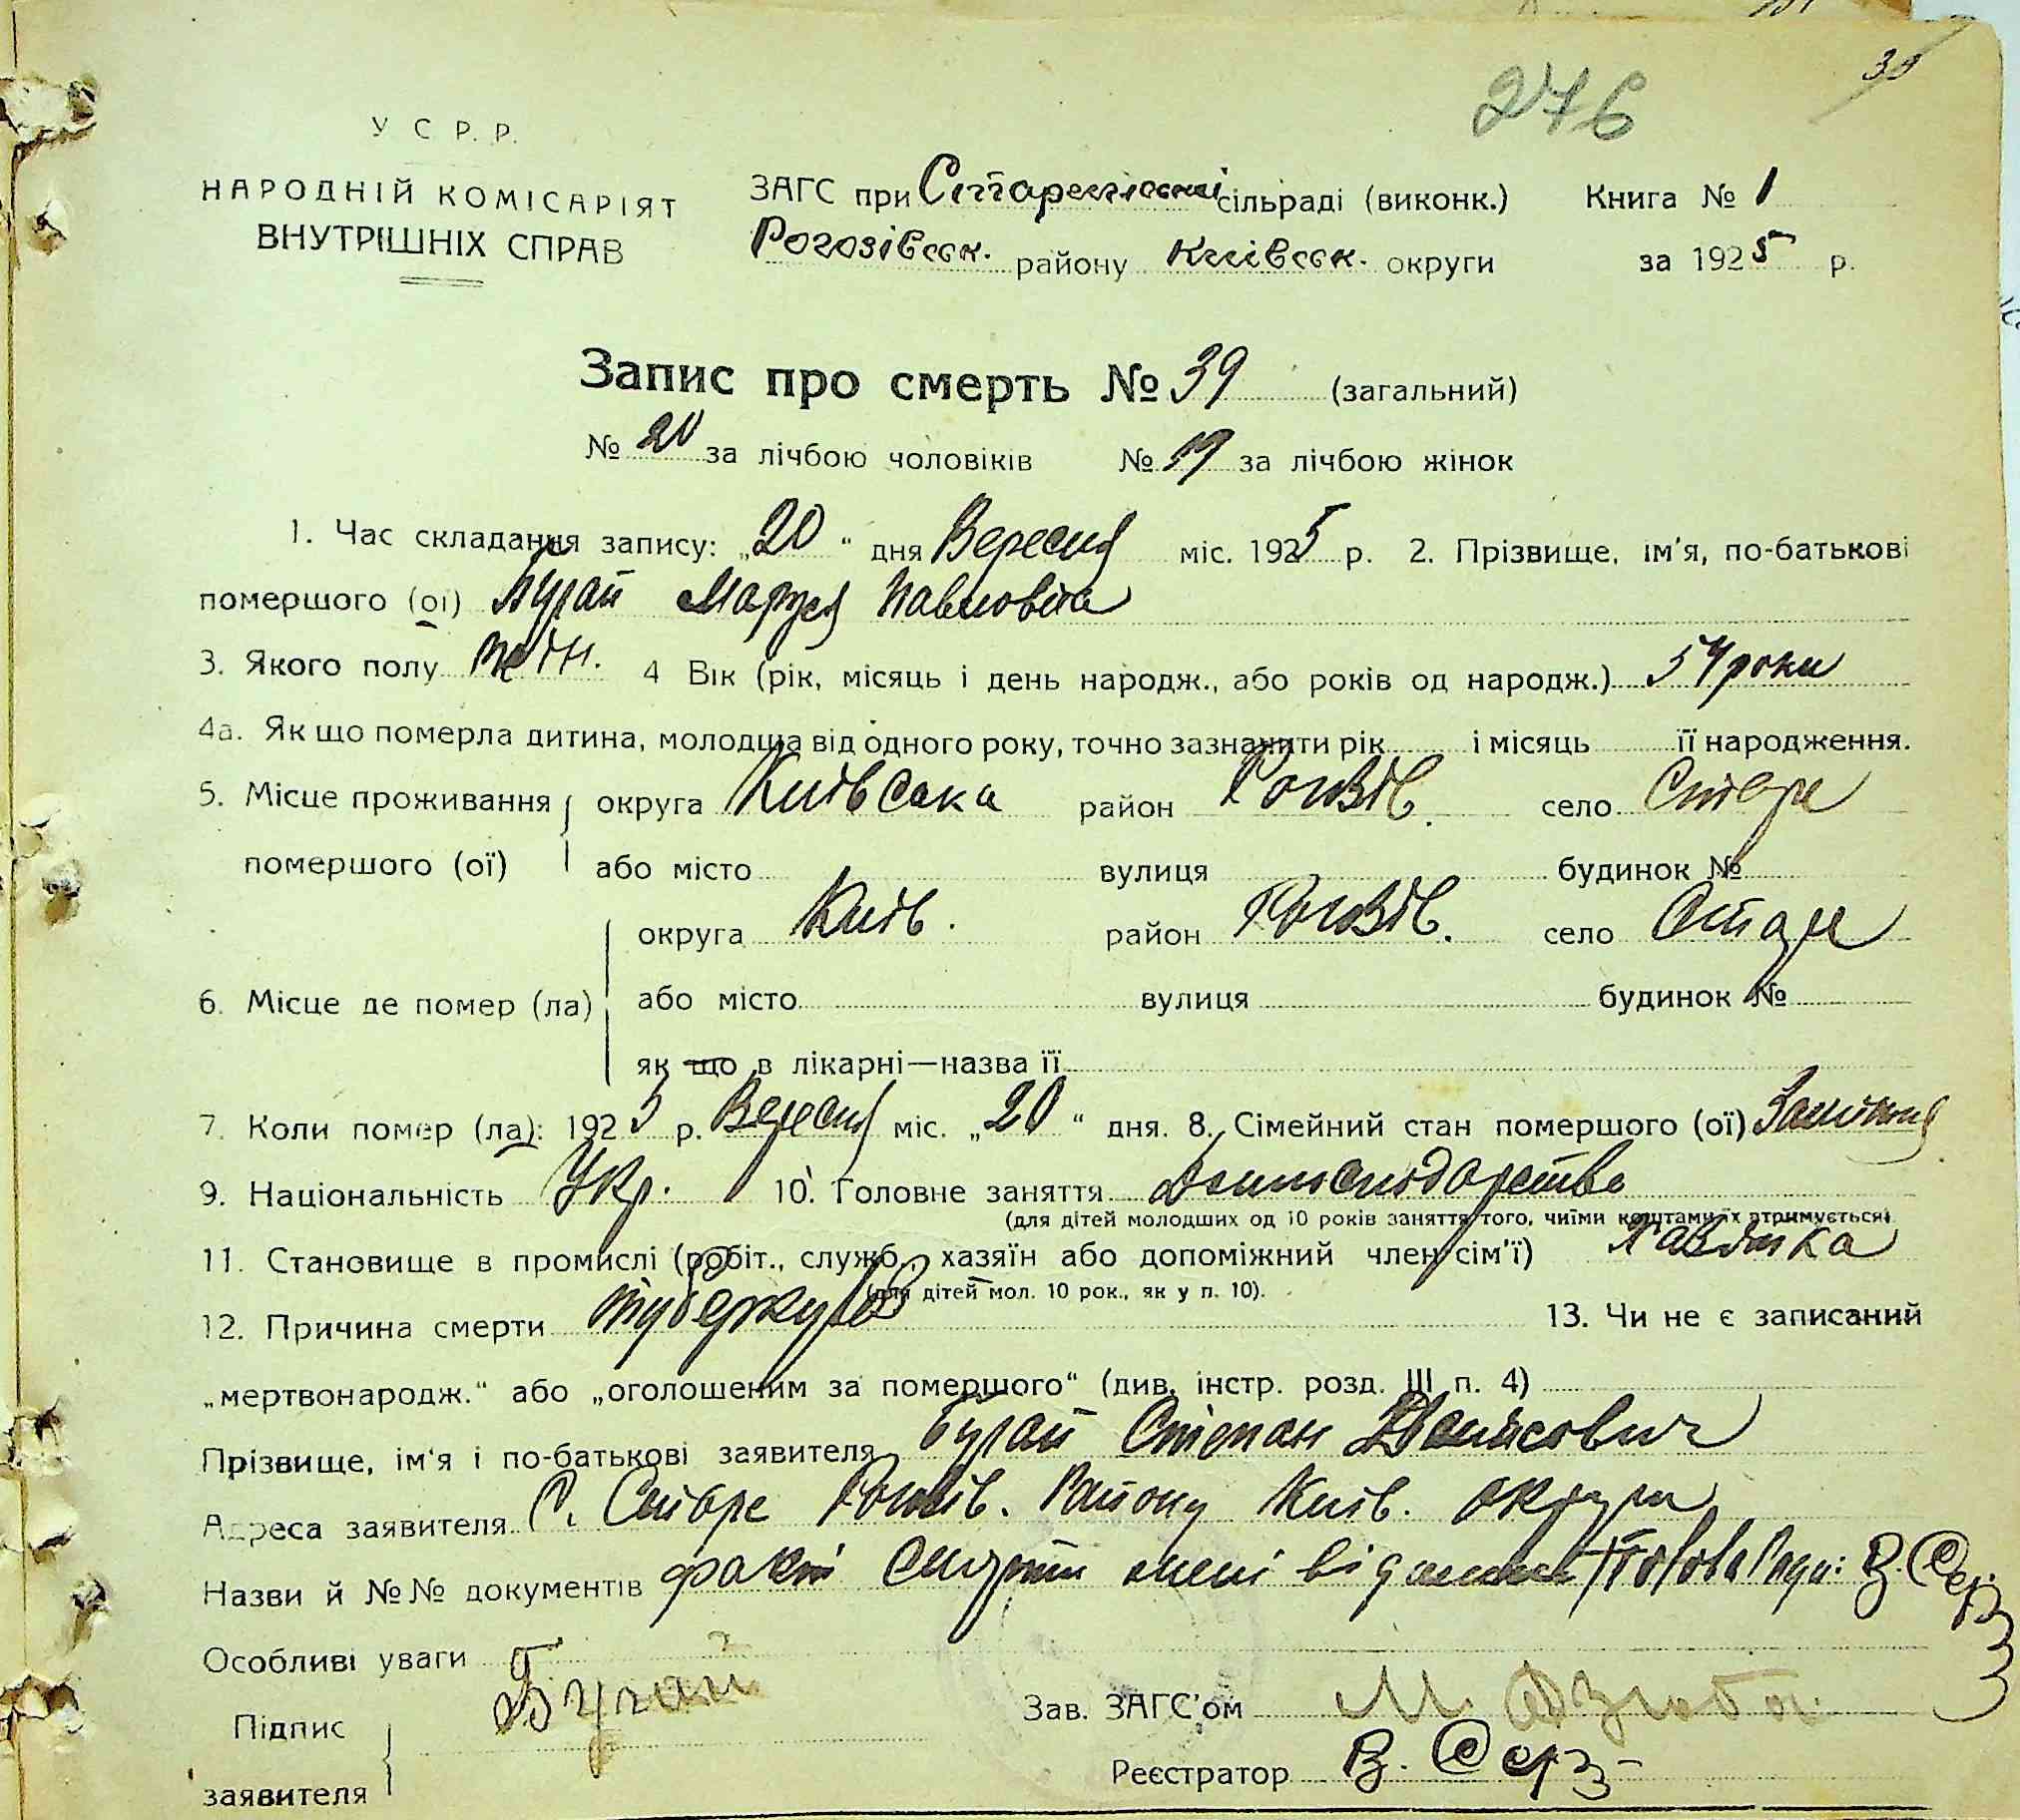 39
276
У С Р. Р.
НАРОДНІЙ КОМІСАРІЯТ
ВНУТРІШНІХ СПРАВ
ЗАГС при Старенській сільраді (виконк.) Книга № 1
Рогозівськ. району Київськ. округи за 1925 р.
Запис про смерть № 39 (загальний)
№ 20 за лічбою чоловіків № 19 за лічбою жінок
1. Час складання запису: „20“ дня Вересня міс. 1925 р. 2. Прізвище, ім'я, по-батькові
помершого (ої) Бугай Маруся Павловна
3. Якого полу жін. 4 Вік (рік, місяць і день народж., або років од народж.) 54 роки
4а. Як що померла дитина, молодша від одного року, точно зазначити рік і місяць її народження.
5. Місце проживання округа Київська район Рогозів. село Старе
помершого (ої) або місто вулиця будинок №
округа Київ. район Рогозів. село Старе
6. Місце де помер (ла) або місто вулиця будинок №
як що в лікарні—назва її
7. Коли помер (ла): 1925 р. Вересня міс. „20“ дня. 8. Сімейний стан помершого (ої) Замужня
9. Національність Укр. 10. Головне заняття
(для дітей молодших од 10 років заняття того, чиїми коштами їх втримується)
11. Становище в промислі (робіт., служб., хазяїн або допоміжний член сім'ї) Хазяйка
(для дітей мол. 10 рок., як у п. 10).
12. Причина смерти туберкульоз 13. Чи не є записаний
„мертвонародж.“ або „оголошеним за помершого“ (див. інстр. розд. III п. 4)
Прізвище, ім'я і по-батькові заявителя Бугай Степан
Адреса заявителя С. Старе Рогозів. Району Київ. округи
Назви й №№ документів факт смерти мені відомий Голова Ради: В. Сер
Особливі уваги
Підпис Бугай
Зав. ЗАГС'ом М Дзюба
Реєстратор В. Сер
заявителя